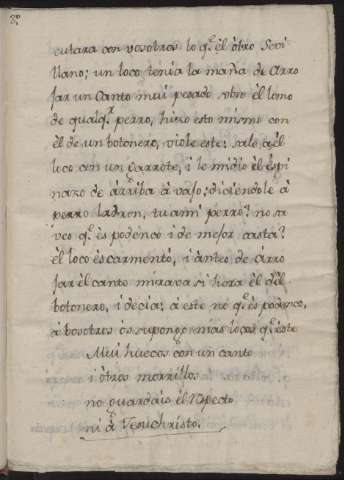 cutara con vosotros lo q.e el ôtro Sevi
llano; un loco tenia la maña de Arro
jar un Canto mui pesado sobre el lomo
de qualq.r perro, hizo esto mismo con
êl de un botonero, viole este; sale a el
loco con un garrote, i le midio el êspi
nazo de arriba â vajo; diciendole â
perro ladron, tu a mi perro? no sa
ves q.e ês podenco i de mejor casta?
êl loco êscarmentó, i ântes de Arro
jar êl canto mirava si hera êl del
botonero, i decia; â este no q.e ês podenco,
â bosotros ôs supongo mas locos q.e êste
Mui huecos con un canto
i ôtros morrillos
no guardais êl
ni â Jesuchristo.